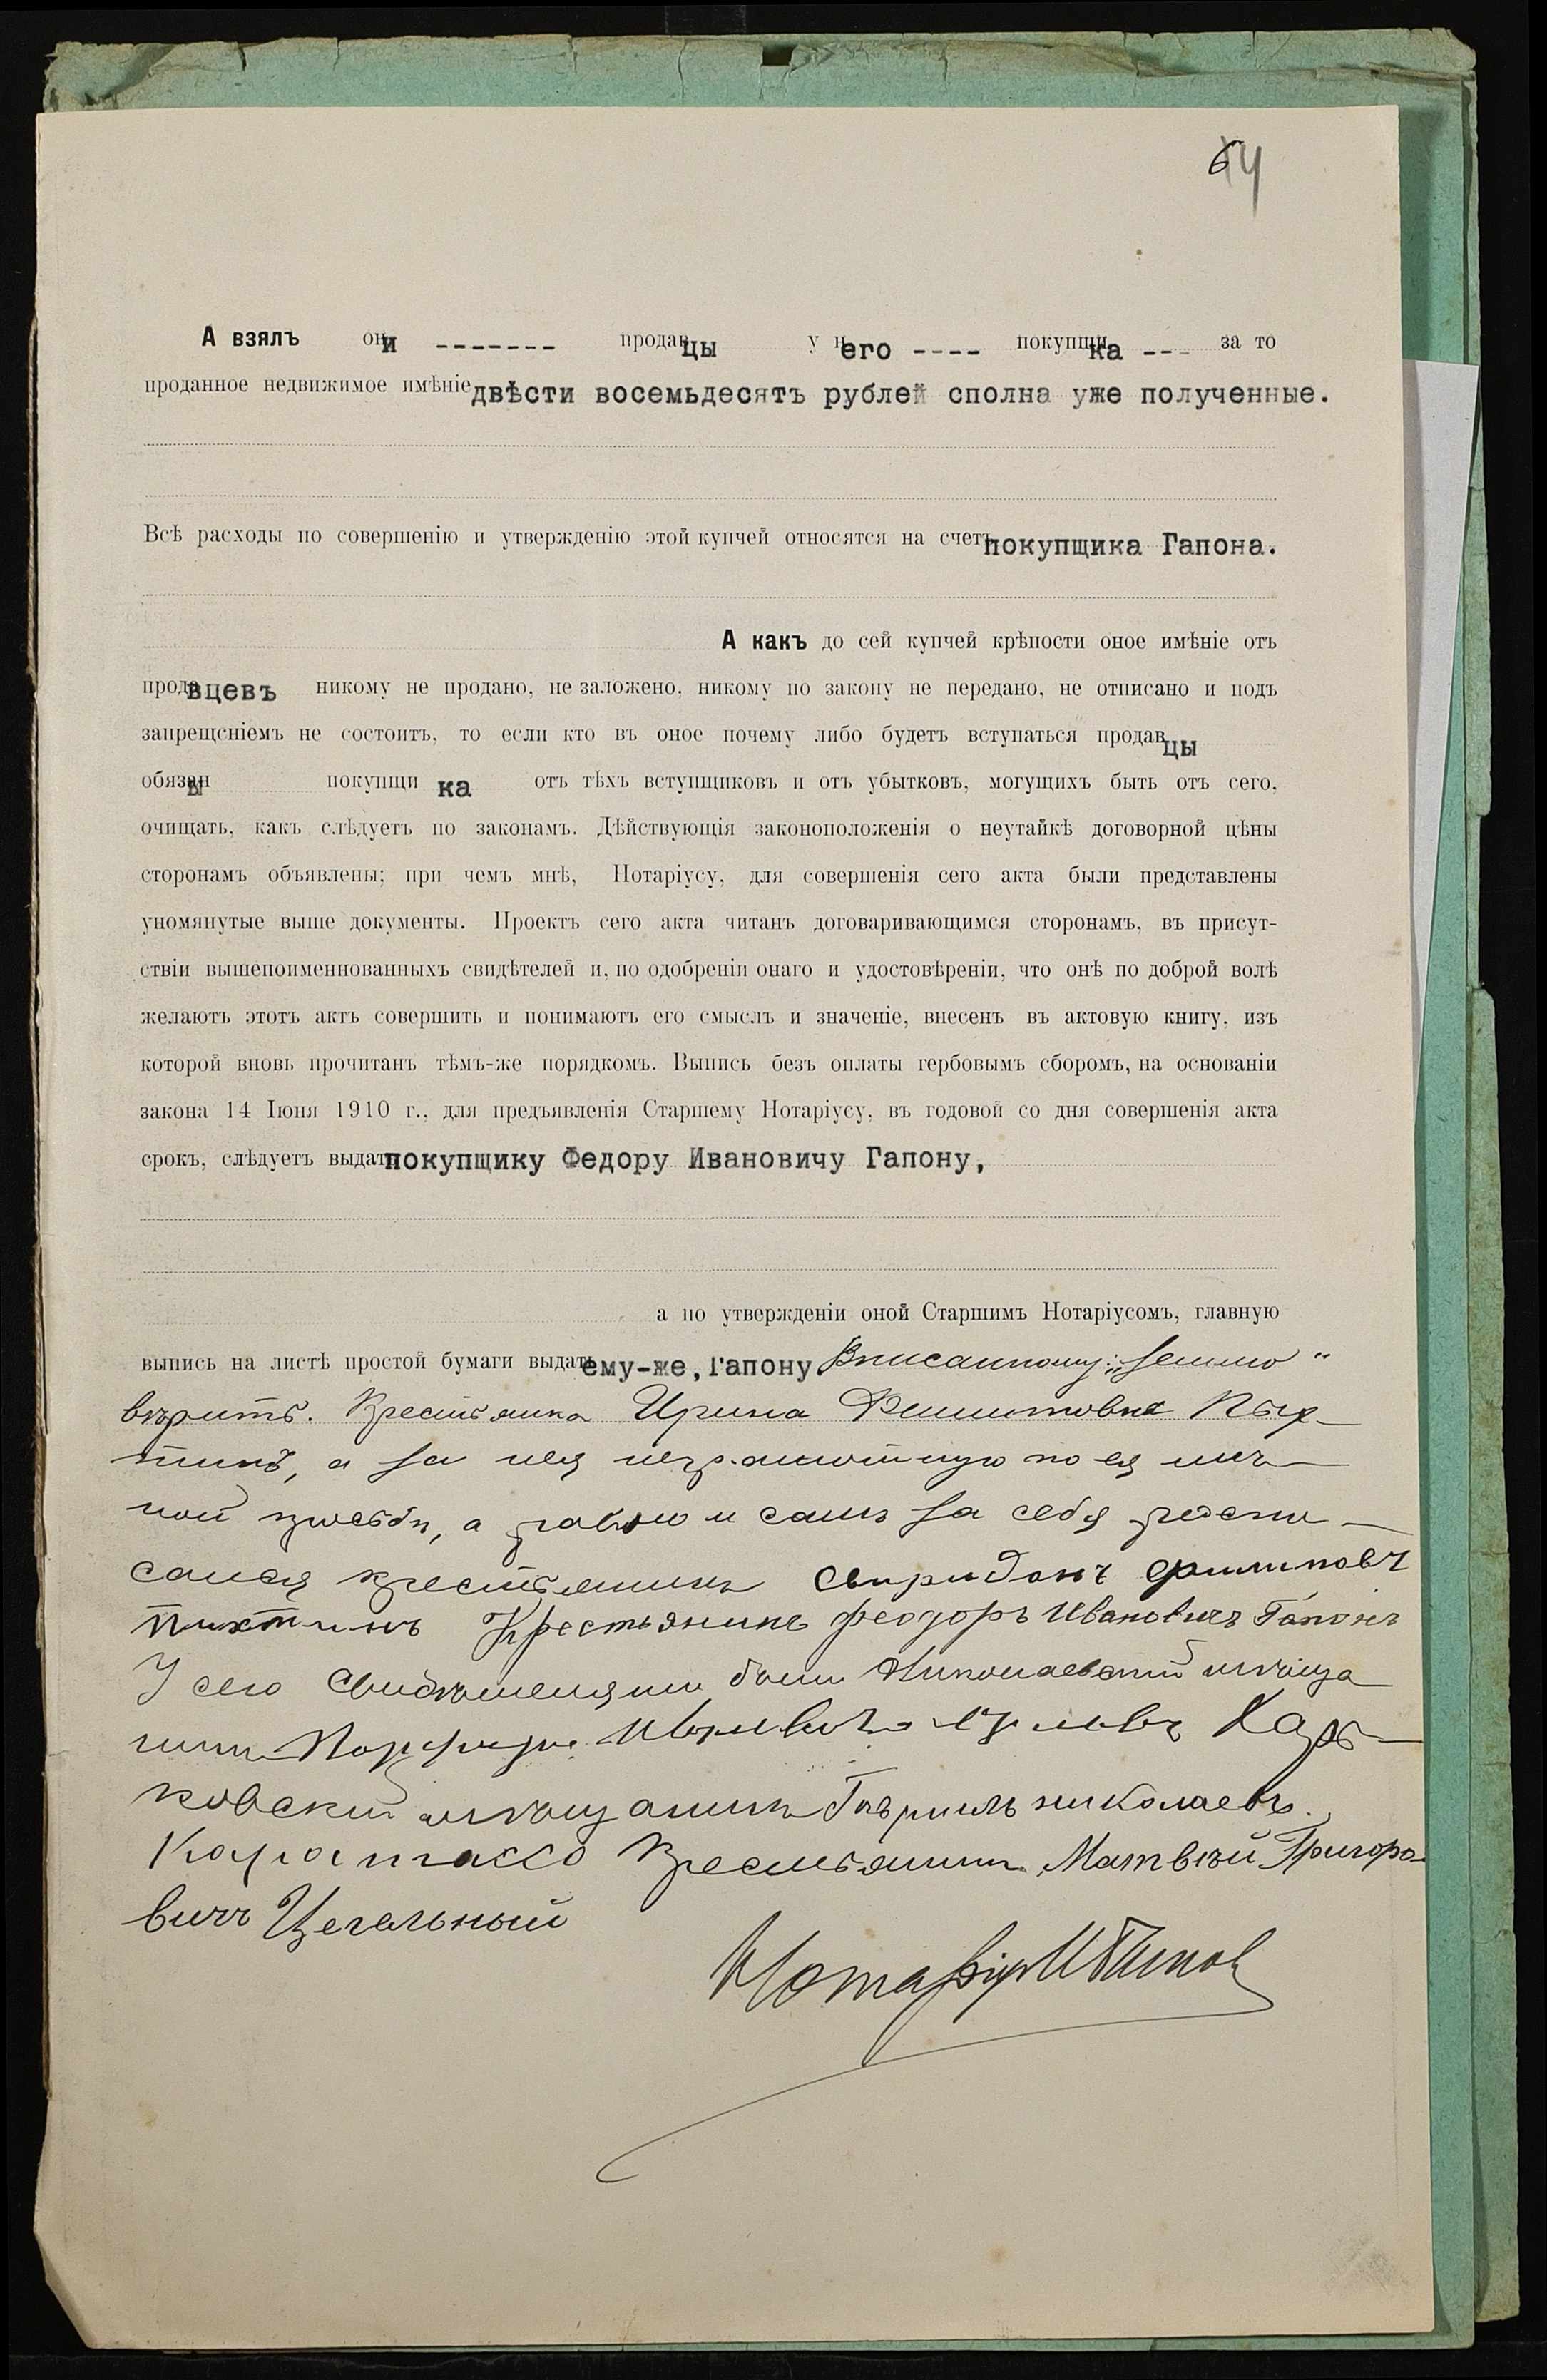 64
А взялъ они ------- продавцы у него ---- покупщика --- за то
проданное недвижимое имѣніе двѣсти восемьдесятъ рублей сполна уже полученные.
Всѣ расходы по совершенію и утвержденію этой купчей относятся на счетъ покупщика Гапона.
А какъ до сей купчей крѣпости оное имѣніе отъ
продавцевъ никому не продано, не заложено, никому по закону не передано, не отписано и подъ
запрещеніемъ не состоитъ, то если кто въ оное почему либо будетъ вступаться продавцы
обязаны покупщика отъ тѣхъ вступщиковъ и отъ убытковъ, могущихъ быть отъ сего,
очищать, какъ слѣдуетъ по законамъ. Дѣйствующія законоположенія о неутайкѣ договорной цѣны
сторонамъ объявлены; при чемъ мнѣ, Нотаріусу, для совершенія сего акта были представлены
упомянутые выше документы. Проектъ сего акта читанъ договаривающимся сторонамъ, въ присут-
ствіи вышепоименнованныхъ свидѣтелей и, по одобреніи онаго и удостовѣреніи, что онѣ по доброй волѣ
желаютъ этотъ актъ совершить и понимаютъ его смыслъ и значеніе, внесенъ въ актовую книгу, изъ
которой вновь прочитанъ тѣмъ-же порядкомъ. Выпись безъ оплаты гербовымъ сборомъ, на основаніи
закона 14 Іюня 1910 г., для предъявленія Старшему Нотаріусу, въ годовой со дня совершенія акта
срокъ, слѣдуетъ выдать покупщику Федору Ивановичу Гапону,
а по утвержденіи оной Старшимъ Нотаріусомъ, главную
выпись на листѣ простой бумаги выдать ему-же, Гапону. Вписанному:
вѣрить. Крестьянка Ирина
а за нея неграмотную по ея лич-
ной просьбѣ, а равно и самъ за себя роспи-
сался крестьянинъ Свиридонъ Филиповъ
Пихтинъ Крестьянинъ Феодоръ Ивановичъ Гапонъ
У сего свидѣтелями были Николаевскій мѣща
нинъ Харь-
ковскій мѣщанинъ Гавриилъ Николаевъ.
Крестьянинъ Матвѣй Григоро-
вичъ Цегельный
Нотаріус